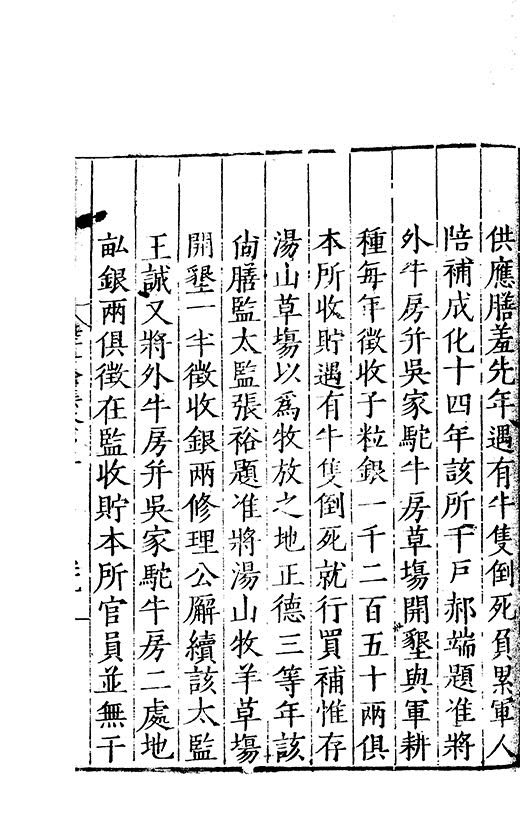 供應膳羞先年遇有牛隻倒死負累軍人
陪補成化十四年該所千戶郝端題准將
外牛房并吳家駝牛房草塲開墾與軍耕
種每年徵收子粒銀一千二百五十兩俱
本所收貯遇有牛隻倒死就行買補惟存
湯山草塲以爲牧放之地正德三等年該
尙膳監太監張裕題准將湯山牧羊草塲
開墾一半徵收銀兩修理公廨續該太監
王誠又將外牛房并吳家駝牛房二處地
畝銀兩俱徵在監收貯本所官員並無干